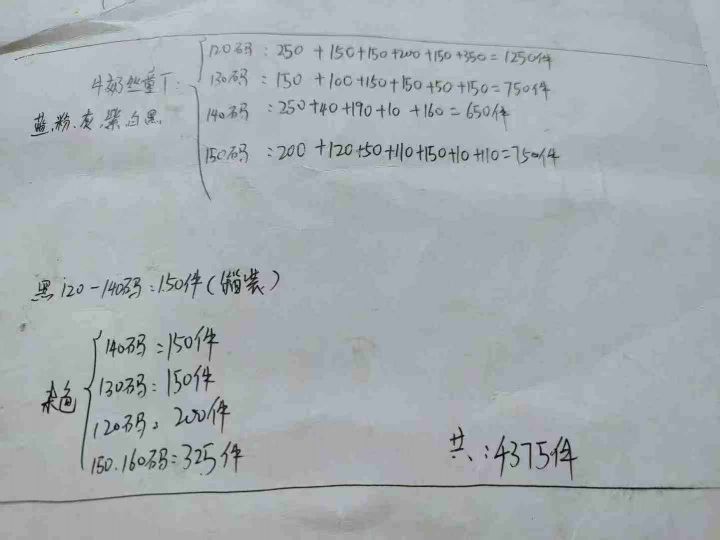 120码：250+150+150+200+150+350=1250件
牛奶丝童T：130码：150+100+150+150+50+150=750件
蓝.粉.灰.紫.白.黑 140码：250+40+190+10+160=650件
150码：200+120+50+110+150+10+110=750件
黑120-140码：150件（箱装）
140码：150件
杂色 130码：150件
120码：200件
150.160码：325件
共：4375件